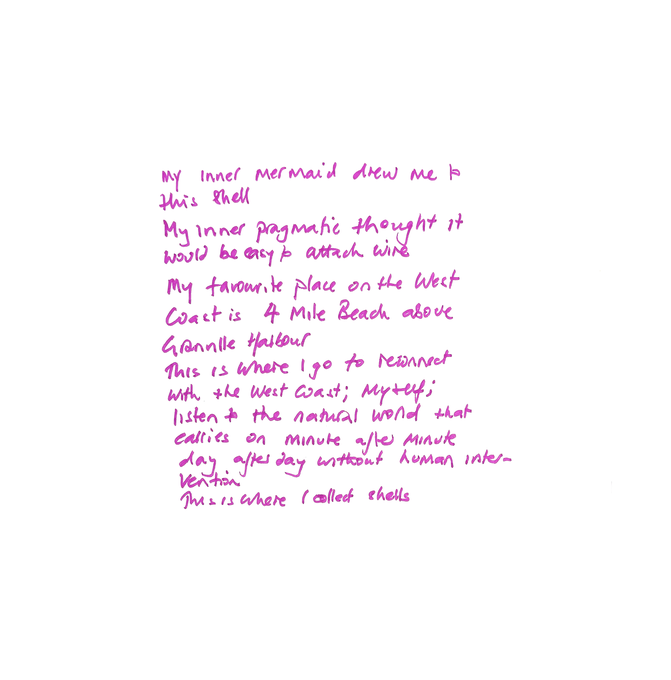 My inner mermaid drew me to
this shell
My inner pragmatic thought it
would be easy to attach wire
My favourite place on the West
Coast is 4 Mile Beach above
Granville Harbour
This is where I go to reconnect
with the West Coast; Myself;
listen to the natural world that
carries on minute after minute
day after day without human inter-
vention
This is where I collect shells